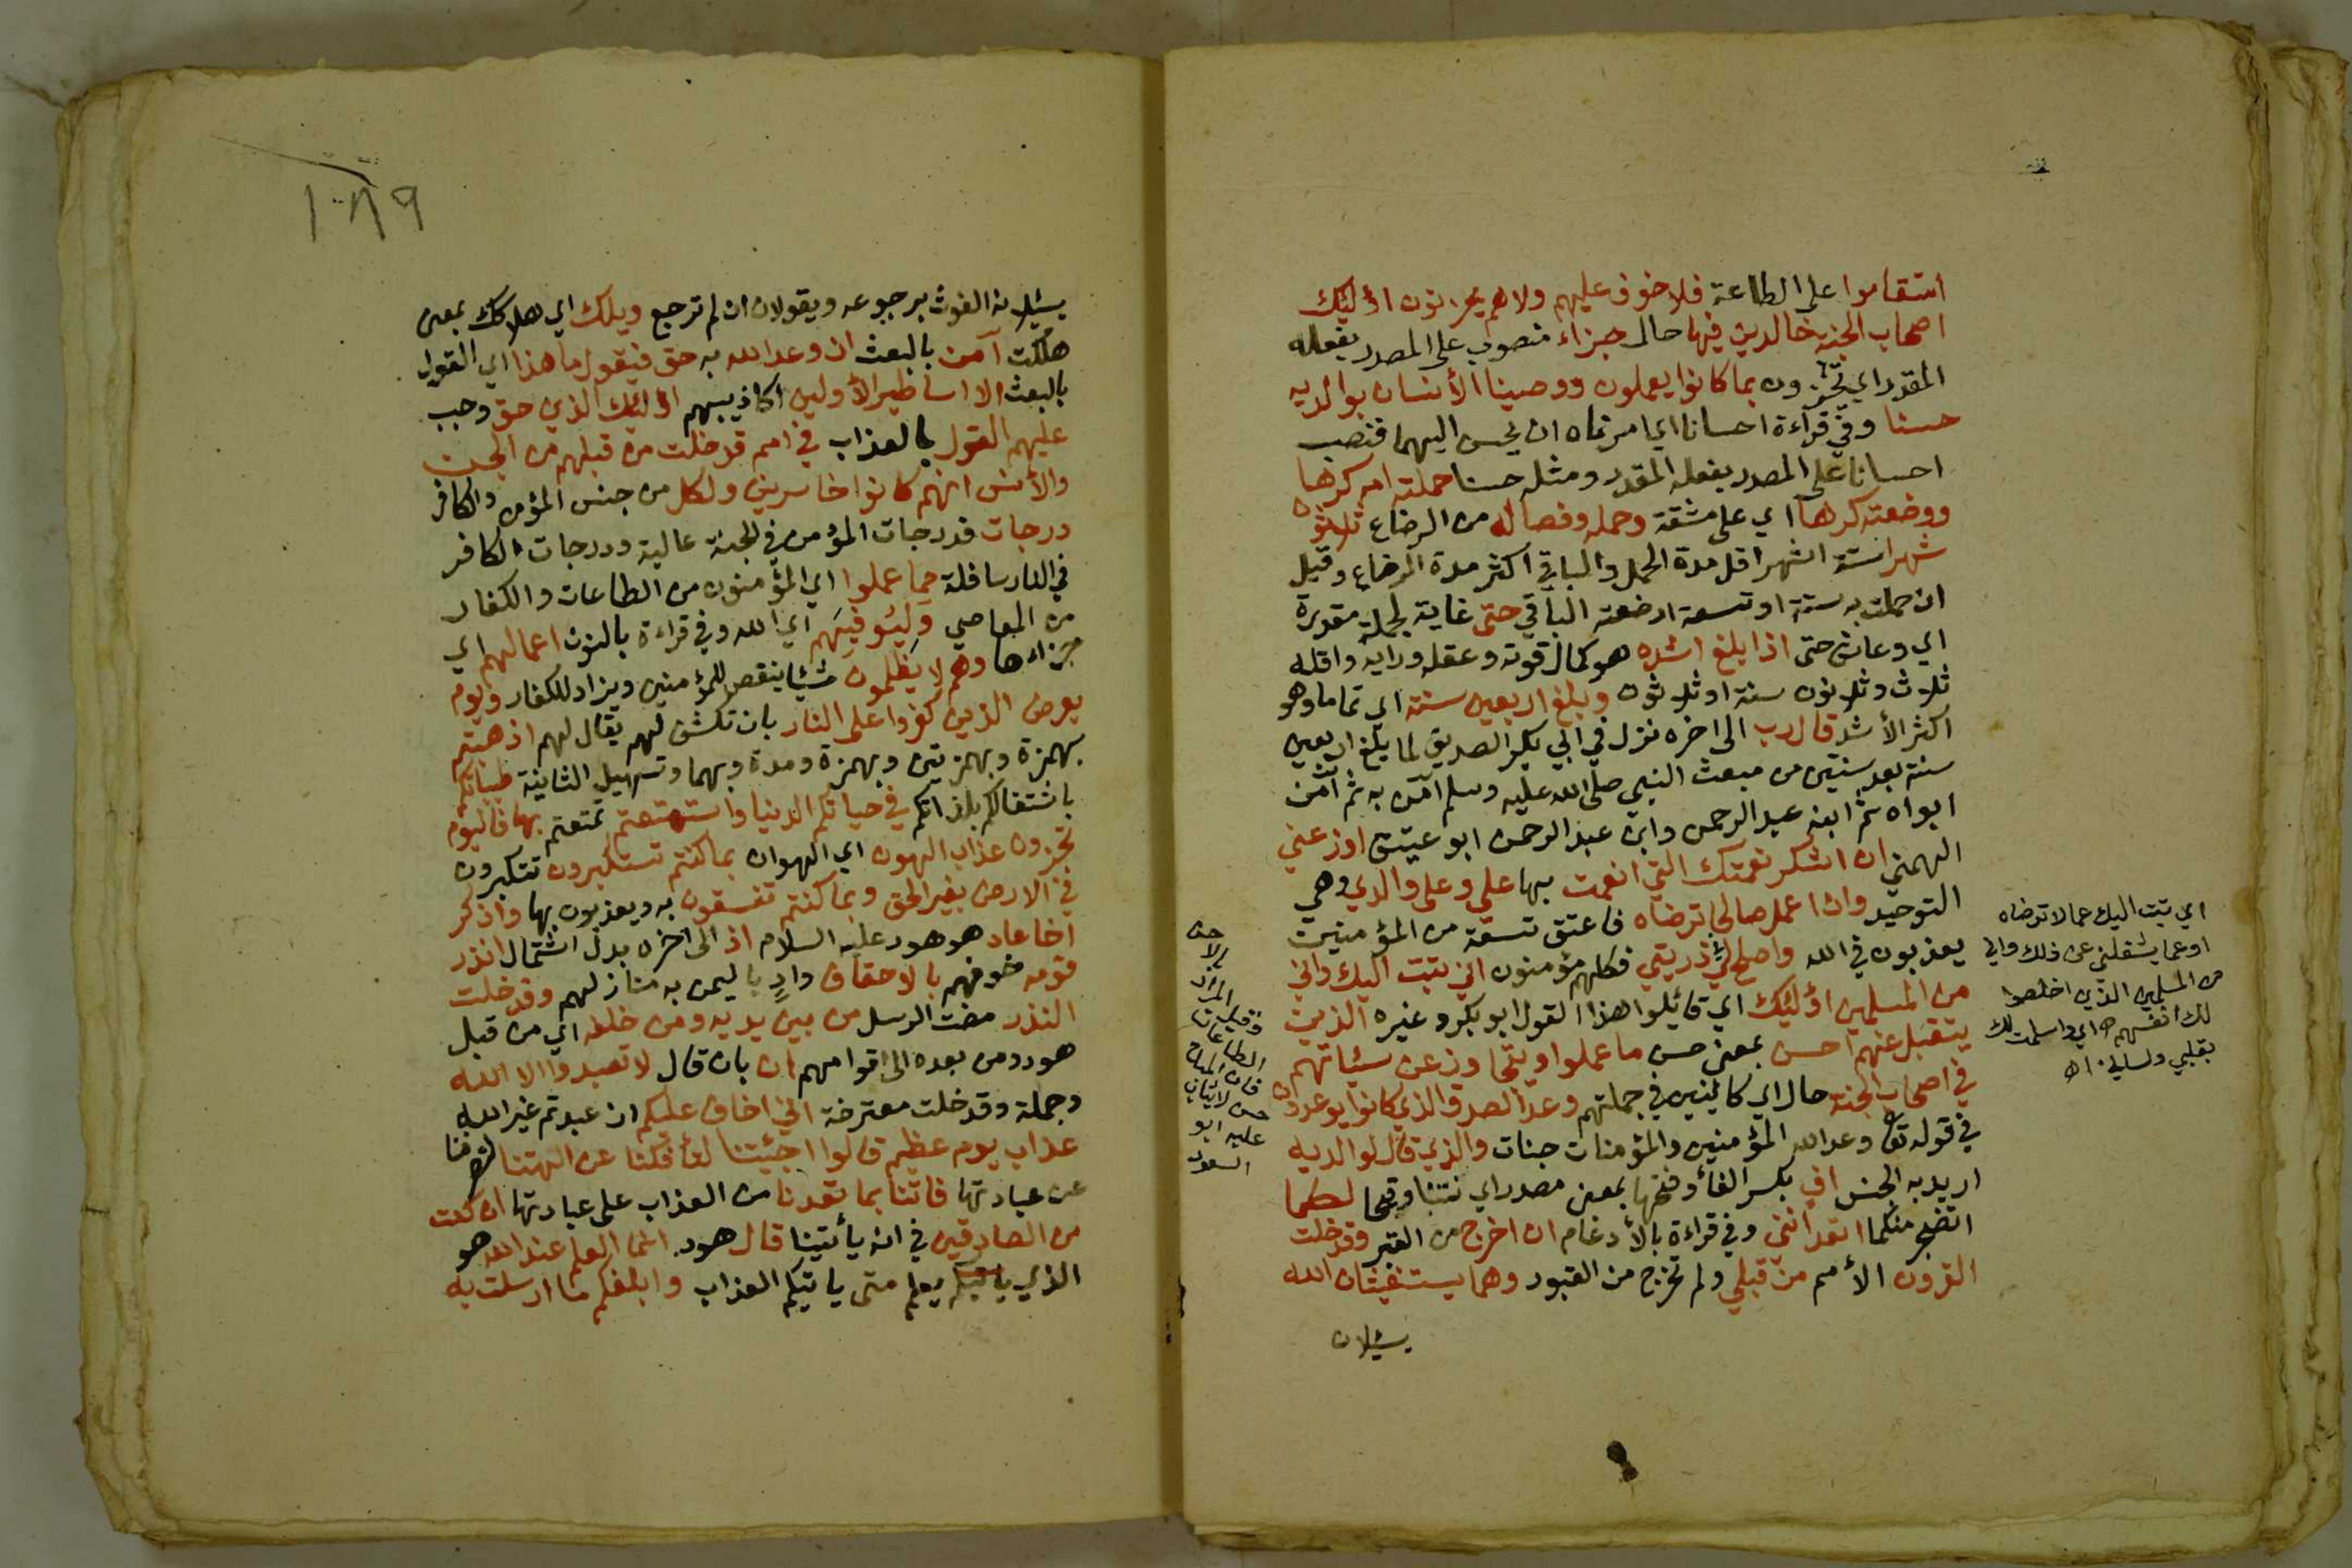 استقاموا على الطاعة فلا خوف عليهم ولا هم يحزنون اولئك
اصحاب الجنة خالدين فيها حال جزاء منصوب على المصدر بفعله
المقدر اي يجزون بما كانوا يعملون ووصينا الأنسان بوالديه
حسنا وفي قراءة احسانا اي امرناه ان يحسن اليهما فنصب
احسانا على المصدر بفعله المقدر ومثله حسنا حملته امه كرها
ووضعته كرها اي على مشقة وحمله وفصاله من الرضاع ثلاثون
شهرا ستة اشهر اقل مدة الحمل والباقي اكثر مدة الرضاع وقيل
ان حملت به ستة او تسعة ارضعته الباقي حتى غاية لجملة مقدرة
اي وعاش حتى اذا بلغ اشده هو كمال قوته وعقله ورايه واقله
ثلاث وثلاثون سنة او ثلاثون وبلغ اربعين سنة اي تمامها وهو
اكثر الأشد قال رب الى اخره نزل في ابي بكر الصديق لما بلغ اربعين
سنة بعد سنتين من مبعث النبي صلى الله عليه وسلم آمن به ثم آمن
ابواه ثم ابنه عبد الرحمن وابن عبد الرحمن ابو عتيق اوزعني
الهمني ان اشكر نعمتك التي انعمت بها علي وعلى والدي وهي
التوحيد وان اعمل صالحا ترضاه فاعتق تسعة من المؤمنين
يعذبون في الله واصلح لي في ذريتي فكلهم مؤمنون اني تبت اليك واني
من المسلمين اولئك اي قائلوا هذا القول ابو بكر وغيره الذين
يتقبل عنهم احسن بمعنى حسن ما عملوا ويتجاوز عن سيئاتهم
في اصحاب الجنة حال اي كائنين في جملتهم وعد الصدق الذي كانوا يوعدون
في قوله تعا وعد الله المؤمنين والمؤمنات جنات والذي قال لوالديه
اريد به الجنس اف بكسر الفاء وفتحها بمعنى مصدر اي نتنا وقبحا لكما
اتضجر منكما اتعدانني وفي قراءة بالأدغام ان اخرج من القبر وقد خلت
القرون الأمم من قبلي ولم تخرج من القبور وهما يستغيثان الله
يسئلان
اي تبت اليك عما لا ترضاه
او عما يشغلني عن ذلك واني
من المسلمين الذين اخلصوا
لك انفسهم اي واسلمت لك
بقلبي ولساني اه
الطاعات
فان المباح
حسن لا يثاب
عليه ابو
السعود
١٠٨٩
يسئلانه الغوث برجوعه ويقولان ان لم ترجع ويلك اي هلاكك بمعنى
هلكت آمن بالبعث ان وعد الله به حق فيقول ما هذا اي القول
بالبعث الا اساطير الأولين اكاذيبهم اولئك الذي حق وجب
عليهم القول بالعذاب في امم قد خلت من قبلهم من الجن
والأنس انهم كانوا خاسرين ولكل من جنس المؤمن والكافر
درجات فدرجات المؤمن في الجنة عالية ودرجات الكافر
في النار سافلة مما عملوا اي المؤمنون من الطاعات والكفار
من المعاصي وليوفيهم اي الله وفي قراءة بالنون اعمالهم اي
جزاءها وهم لا يظلمون شيئا ينقص للمؤمنين ويزاد للكفار ويوم
يعرض الذين كفروا على النار بان تكشف لهم يقال لهم اذهبتم
بهمزة وبهمزتين وبهمزة ومدة وبهما وتسهيل الثانية طيباتكم
باشتغالكم بلذاتكم في حياتكم الدنيا واستمتعتم تمتعتم بها فاليوم
تجزون عذاب الهون اي الهوان بما كنتم تستكبرون تتكبرون
في الارض بغير الحق وبما كنتم تفسقون به ويعذبون بها واذكر
اخا عاد هو هود عليه السلام اذ الى آخره بدل اشتمال انذر
قومه خوفهم بالاحقاف وادٍ باليمن به منازلهم وقد خلت
النذر مضت الرسل من بين يديه ومن خلفه اي من قبل
هود ومن بعده الى اقوامهم ان بان قال لا تعبدوا الا الله
وجملة وقد خلت معترضة اني اخاف عليكم ان عبدتم غير الله
عذاب يوم عظيم قالوا اجئتنا لتأفكنا عن الهتنا لتصرفنا
عن عبادتها فاتنا بما تعدنا من العذاب على عبادتها ان كنت
من الصادقين في انه يأتينا قال هود انما العلم عند الله هو
الذي يعلم متى ياتيكم العذاب وابلغكم ما ارسلت به